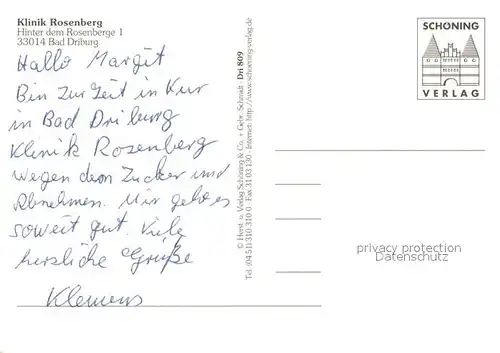 Klinik Rosenberg
Hinter dem Rosenberge 1
33014 Bad Driburg
Hallo Margit
Bin zur Zeit in Kur
in Bad Driburg
Klinik Rosenberg
wegen dem Zucker und
Abnehmen. Mir geht es
soweit gut. Viele
herzliche Grüße
Klemens
© Horst u. Verlag Schöning & Co. + Gebr. Schmidt Dri 809
Tel. (04 51) 310 310 0 Fax 31 03 130 - Internet: http://www.schoening-verlag.de
SCHÖNING
VERLAG
privacy protection
Datenschutz